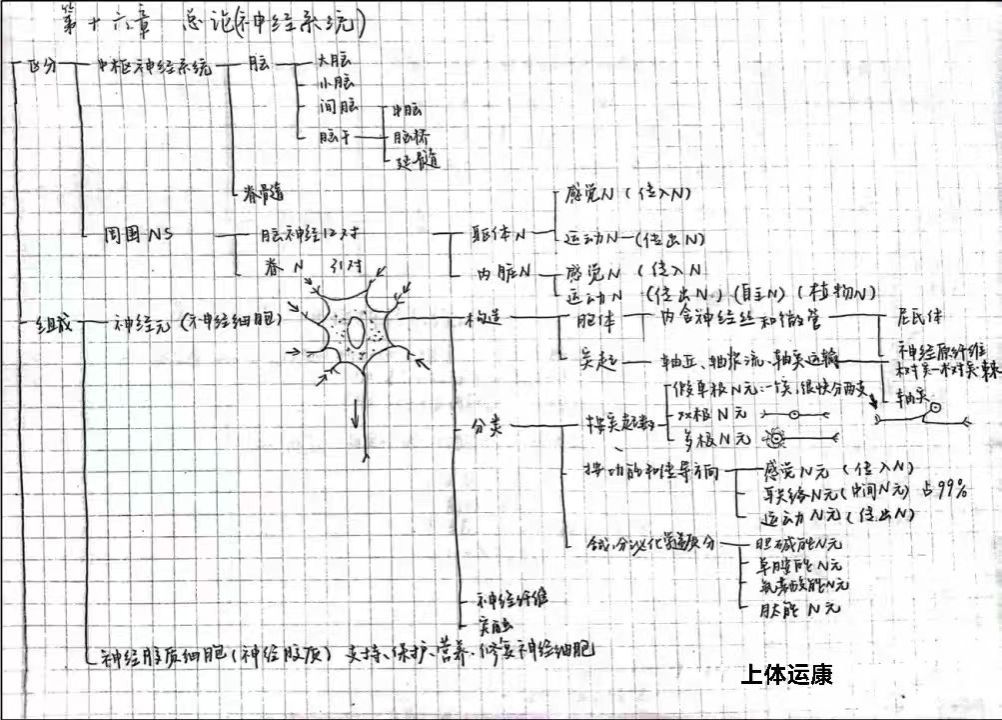 第十六章 总论(神经系统)
区分
中枢神经系统
脑
大脑
小脑
间脑
脑干
中脑
脑桥
延髓
脊髓
周围NS
脑神经12对
脊N 31对
躯体N
感觉N(传入N)
运动N(传出N)
内脏N
感觉N(传入N
运动N (传出N)(自主N)(植物N)
组成
神经元(神经细胞)
构造
胞体
内含神经丝和微管
尼氏体
神经原纤维
树突—树突棘
轴突
突起
轴丘、轴浆流、轴突运输
分类
按突起数
假单极N元:一突,很快分两支
双极N元
多极N元
按功能和传导方向
感觉N元(传入N)
联络N元(中间N元)占99%
运动N元(传出N)
合成、分泌化学递质分
胆碱能N元
单胺能N元
氨基酸能N元
肽能N元
神经纤维
突触
神经胶质细胞(神经胶质) 支持、保护、营养、修复神经细胞
上体运康